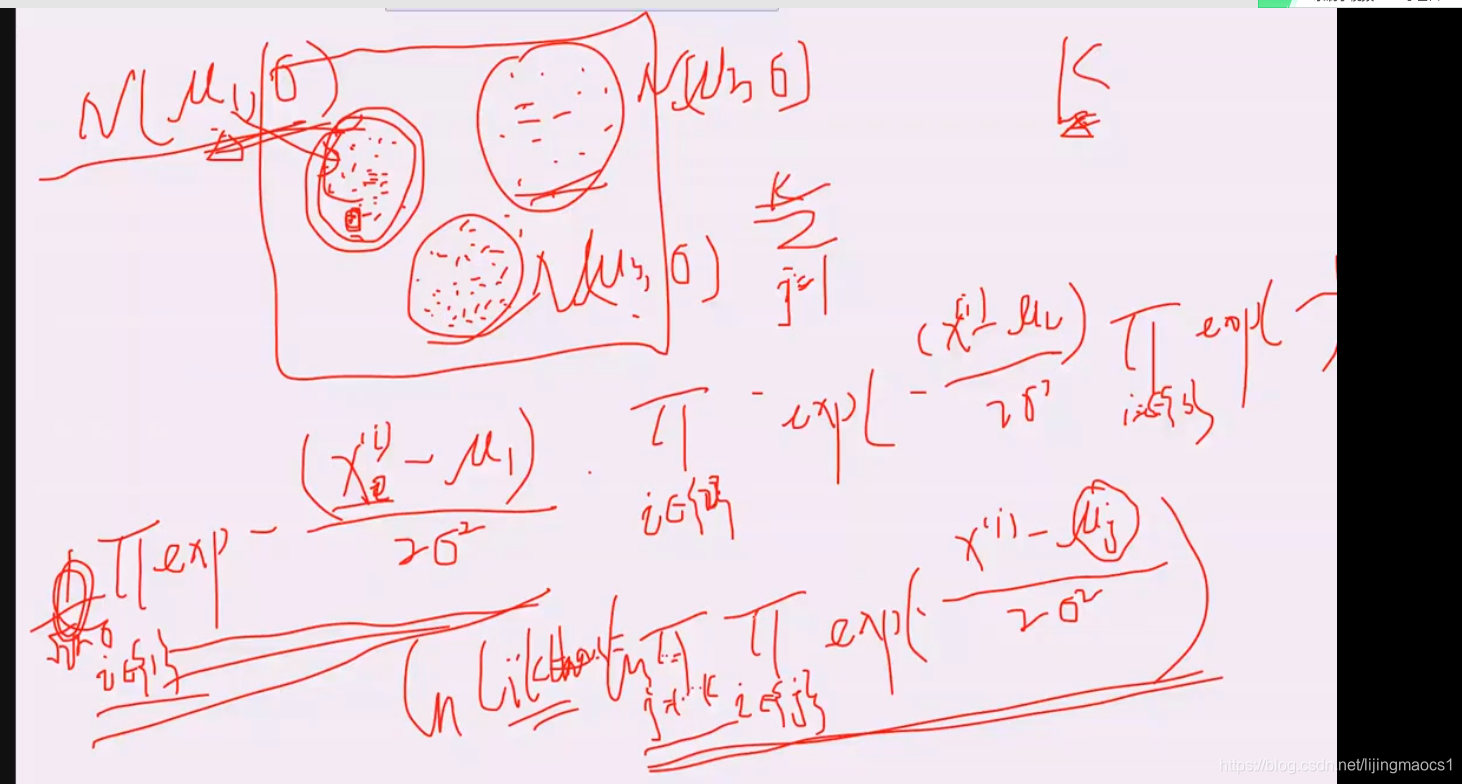 N(μ₁, σ)
N(μ₂, σ)
K
N(μ₃, σ)
K
Σ
j=1
∏ exp - (x⁽ⁱ⁾ - μ₁) / 2σ²
i∈{1}
· ∏ exp(- (x⁽ⁱ⁾ - μ₂) / 2σ²)
i∈{2}
∏ exp(-
i∈{3}
ln Likelihood = ln ∏ ∏ exp(- (x⁽ⁱ⁾ - μⱼ) / 2σ²)
j=1…K i∈{j}
https://blog.csdn.net/lijingmaocs1